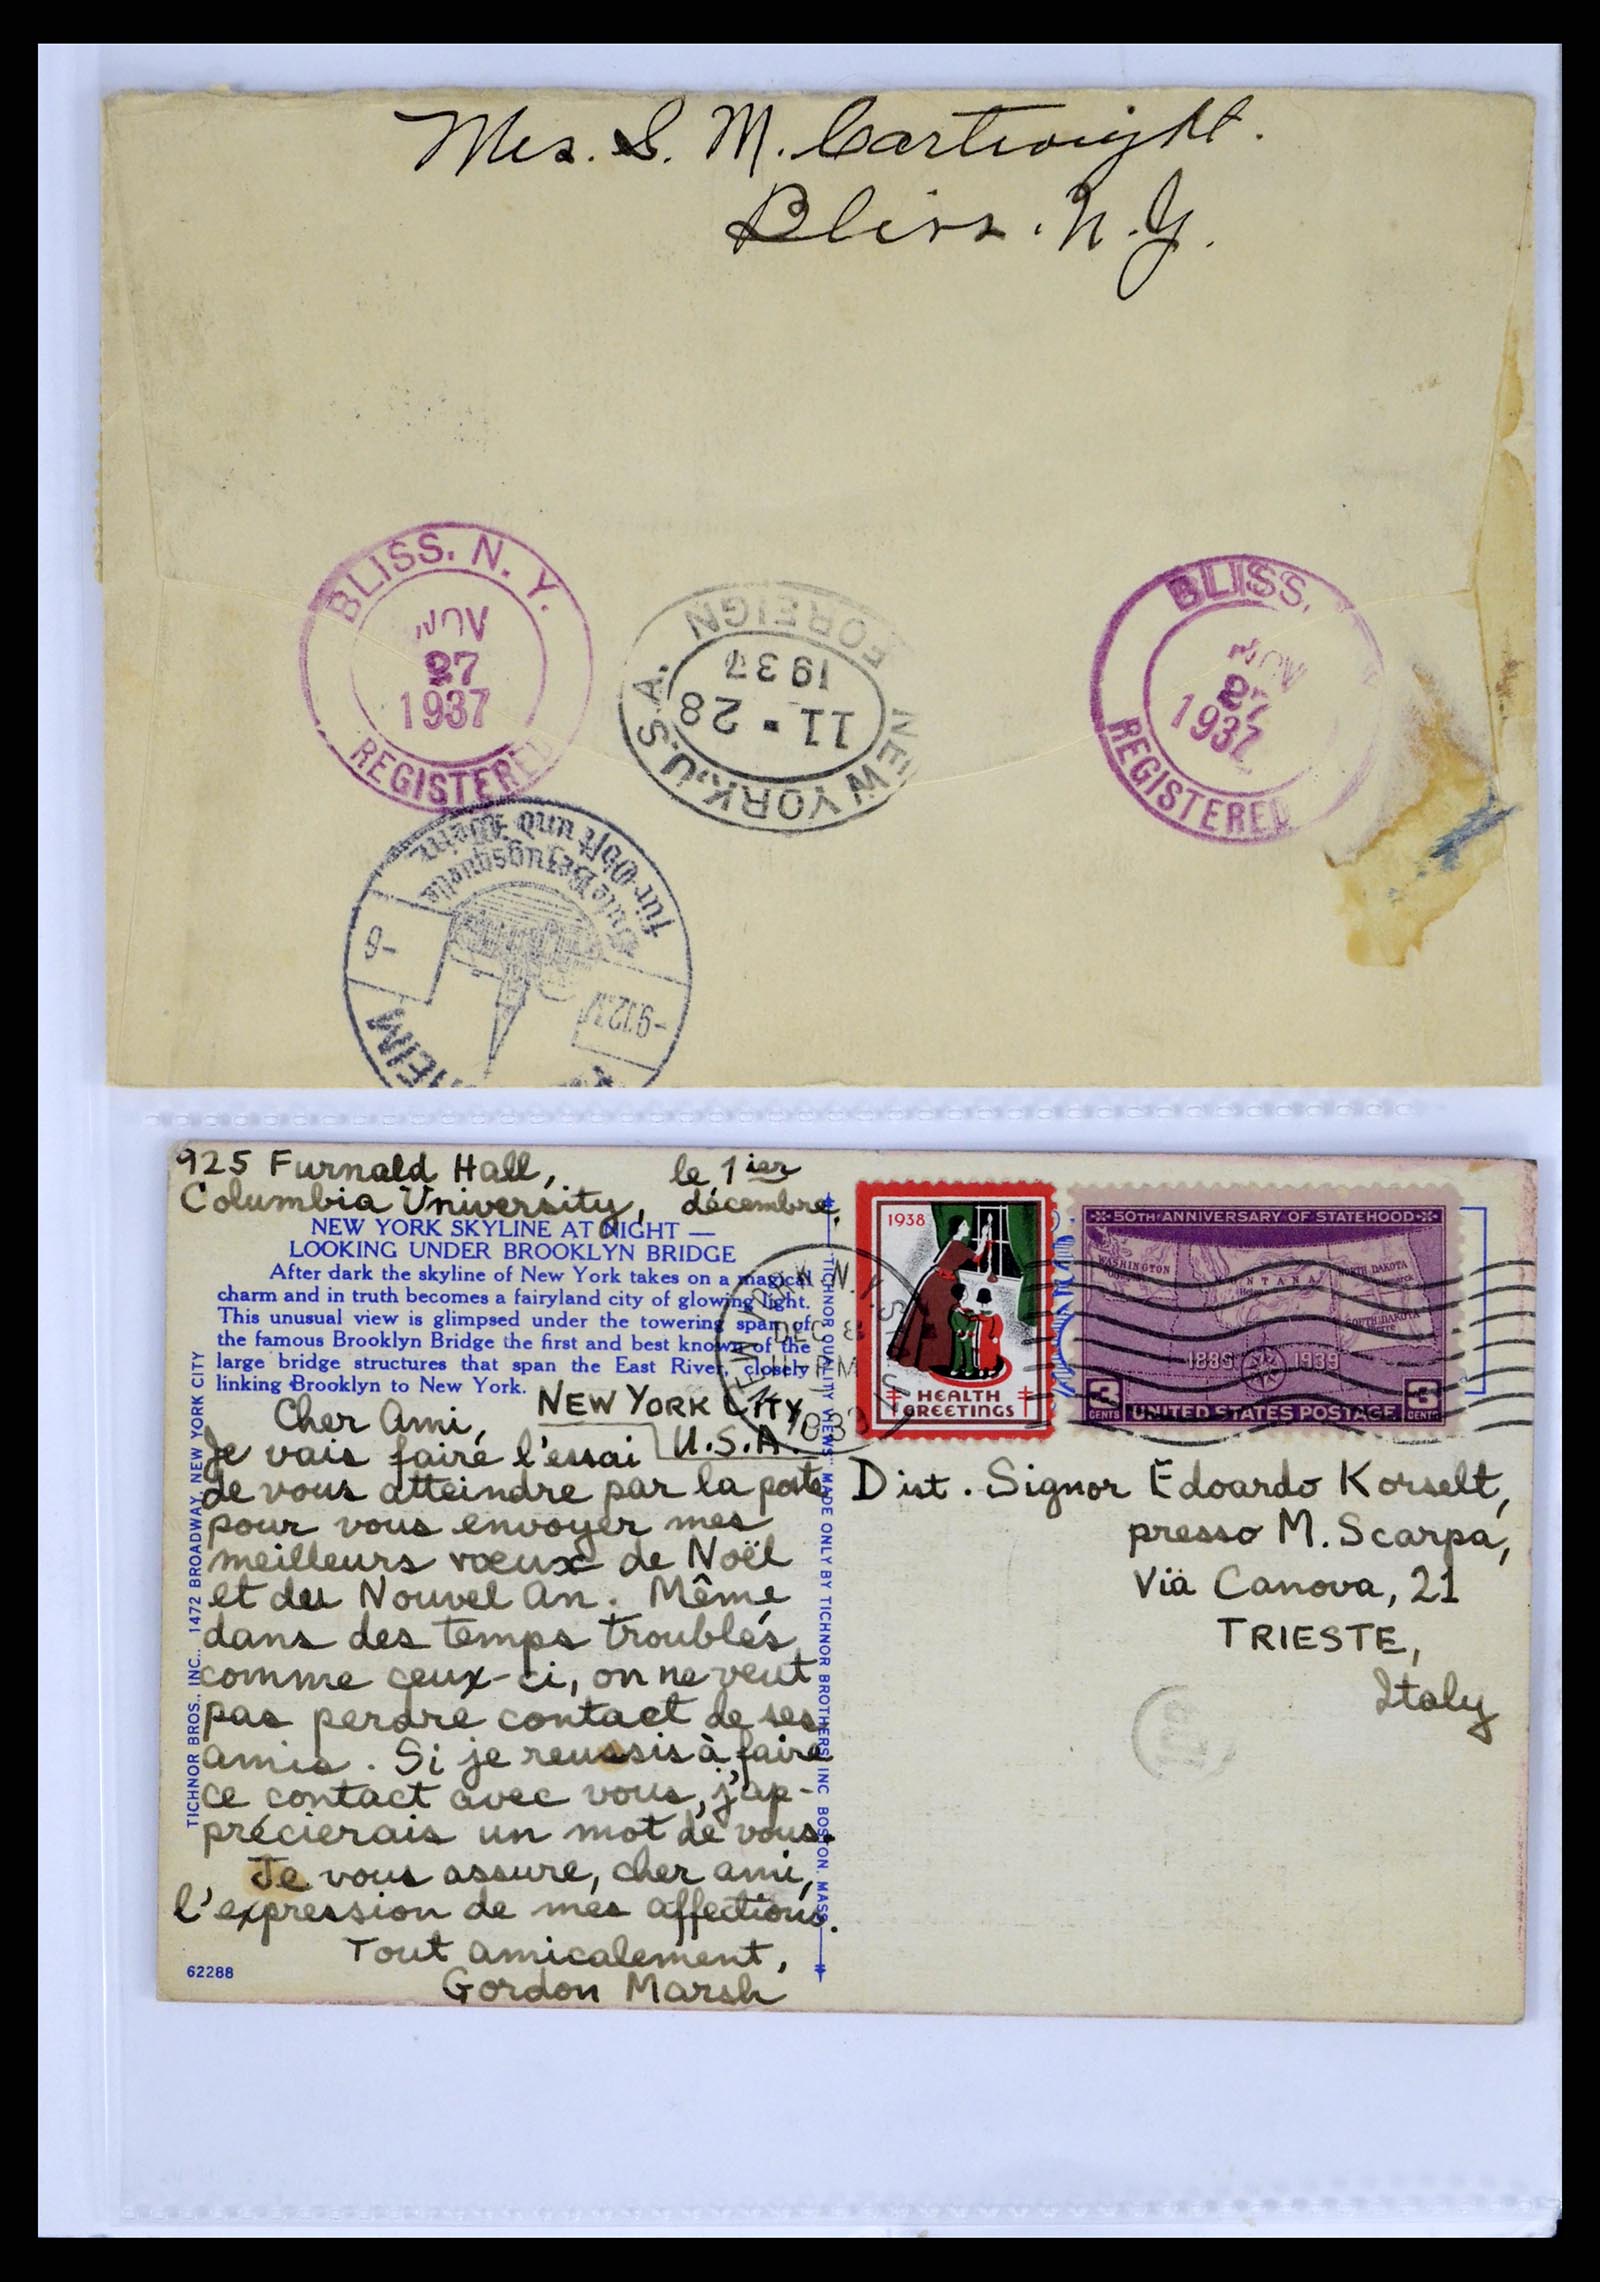 Mrs. S. M. Cartwright.
Bliss. N.Y.
BLISS. N. Y.
NOV
27
1937
REGISTERED
NEW YORK, U.S.A.
FOREIGN
11-28
1937
BLISS.
NOV
27
1937
REGISTERED
für Obst und Wein
Gute Bezugsquelle
-9.12.37
-9
HEIM
925 Furnald Hall,
Columbia University,
le 1ier
décembre.
NEW YORK SKYLINE AT NIGHT —
LOOKING UNDER BROOKLYN BRIDGE
After dark the skyline of New York takes on a magical
charm and in truth becomes a fairyland city of glowing light.
This unusual view is glimpsed under the towering span of
the famous Brooklyn Bridge the first and best known of the
large bridge structures that span the East River, closely
linking Brooklyn to New York.
NEW YORK CITY
U.S.A.
Cher Ami,
Je vais faire l'essai
de vous atteindre par la poste
pour vous envoyer mes
meilleurs vœux de Noël
et du Nouvel An. Même
dans des temps troublés
comme ceux-ci, on ne veut
pas perdre contact de ses
amis. Si je reussis à faire
ce contact avec vous, j'ap-
précierais un mot de vous.
Je vous assure, cher ami,
l'expression de mes affections.
Tout amicalement,
Gordon Marsh
62288
TICHNOR BROS., INC., 1472 BROADWAY, NEW YORK CITY
"TICHNOR QUALITY VIEWS" MADE ONLY BY TICHNOR BROTHERS, INC BOSTON. MASS
DEC 8
PM
1938
HEALTH
GREETINGS
50TH ANNIVERSARY OF STATEHOOD
WASHINGTON
MONTANA
NORTH DAKOTA
SOUTH DAKOTA
1889
1939
3
CENTS
UNITED STATES POSTAGE
3
CENTS
Dist. Signor Edoardo Korselt,
presso M. Scarpa,
Via Canova, 21
TRIESTE,
Italy